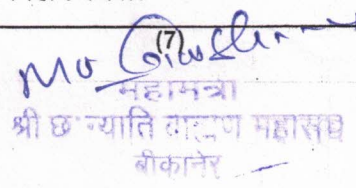 (7)
महामंत्री
श्री छः न्याति ब्राह्मण महासंघ
बीकानेर